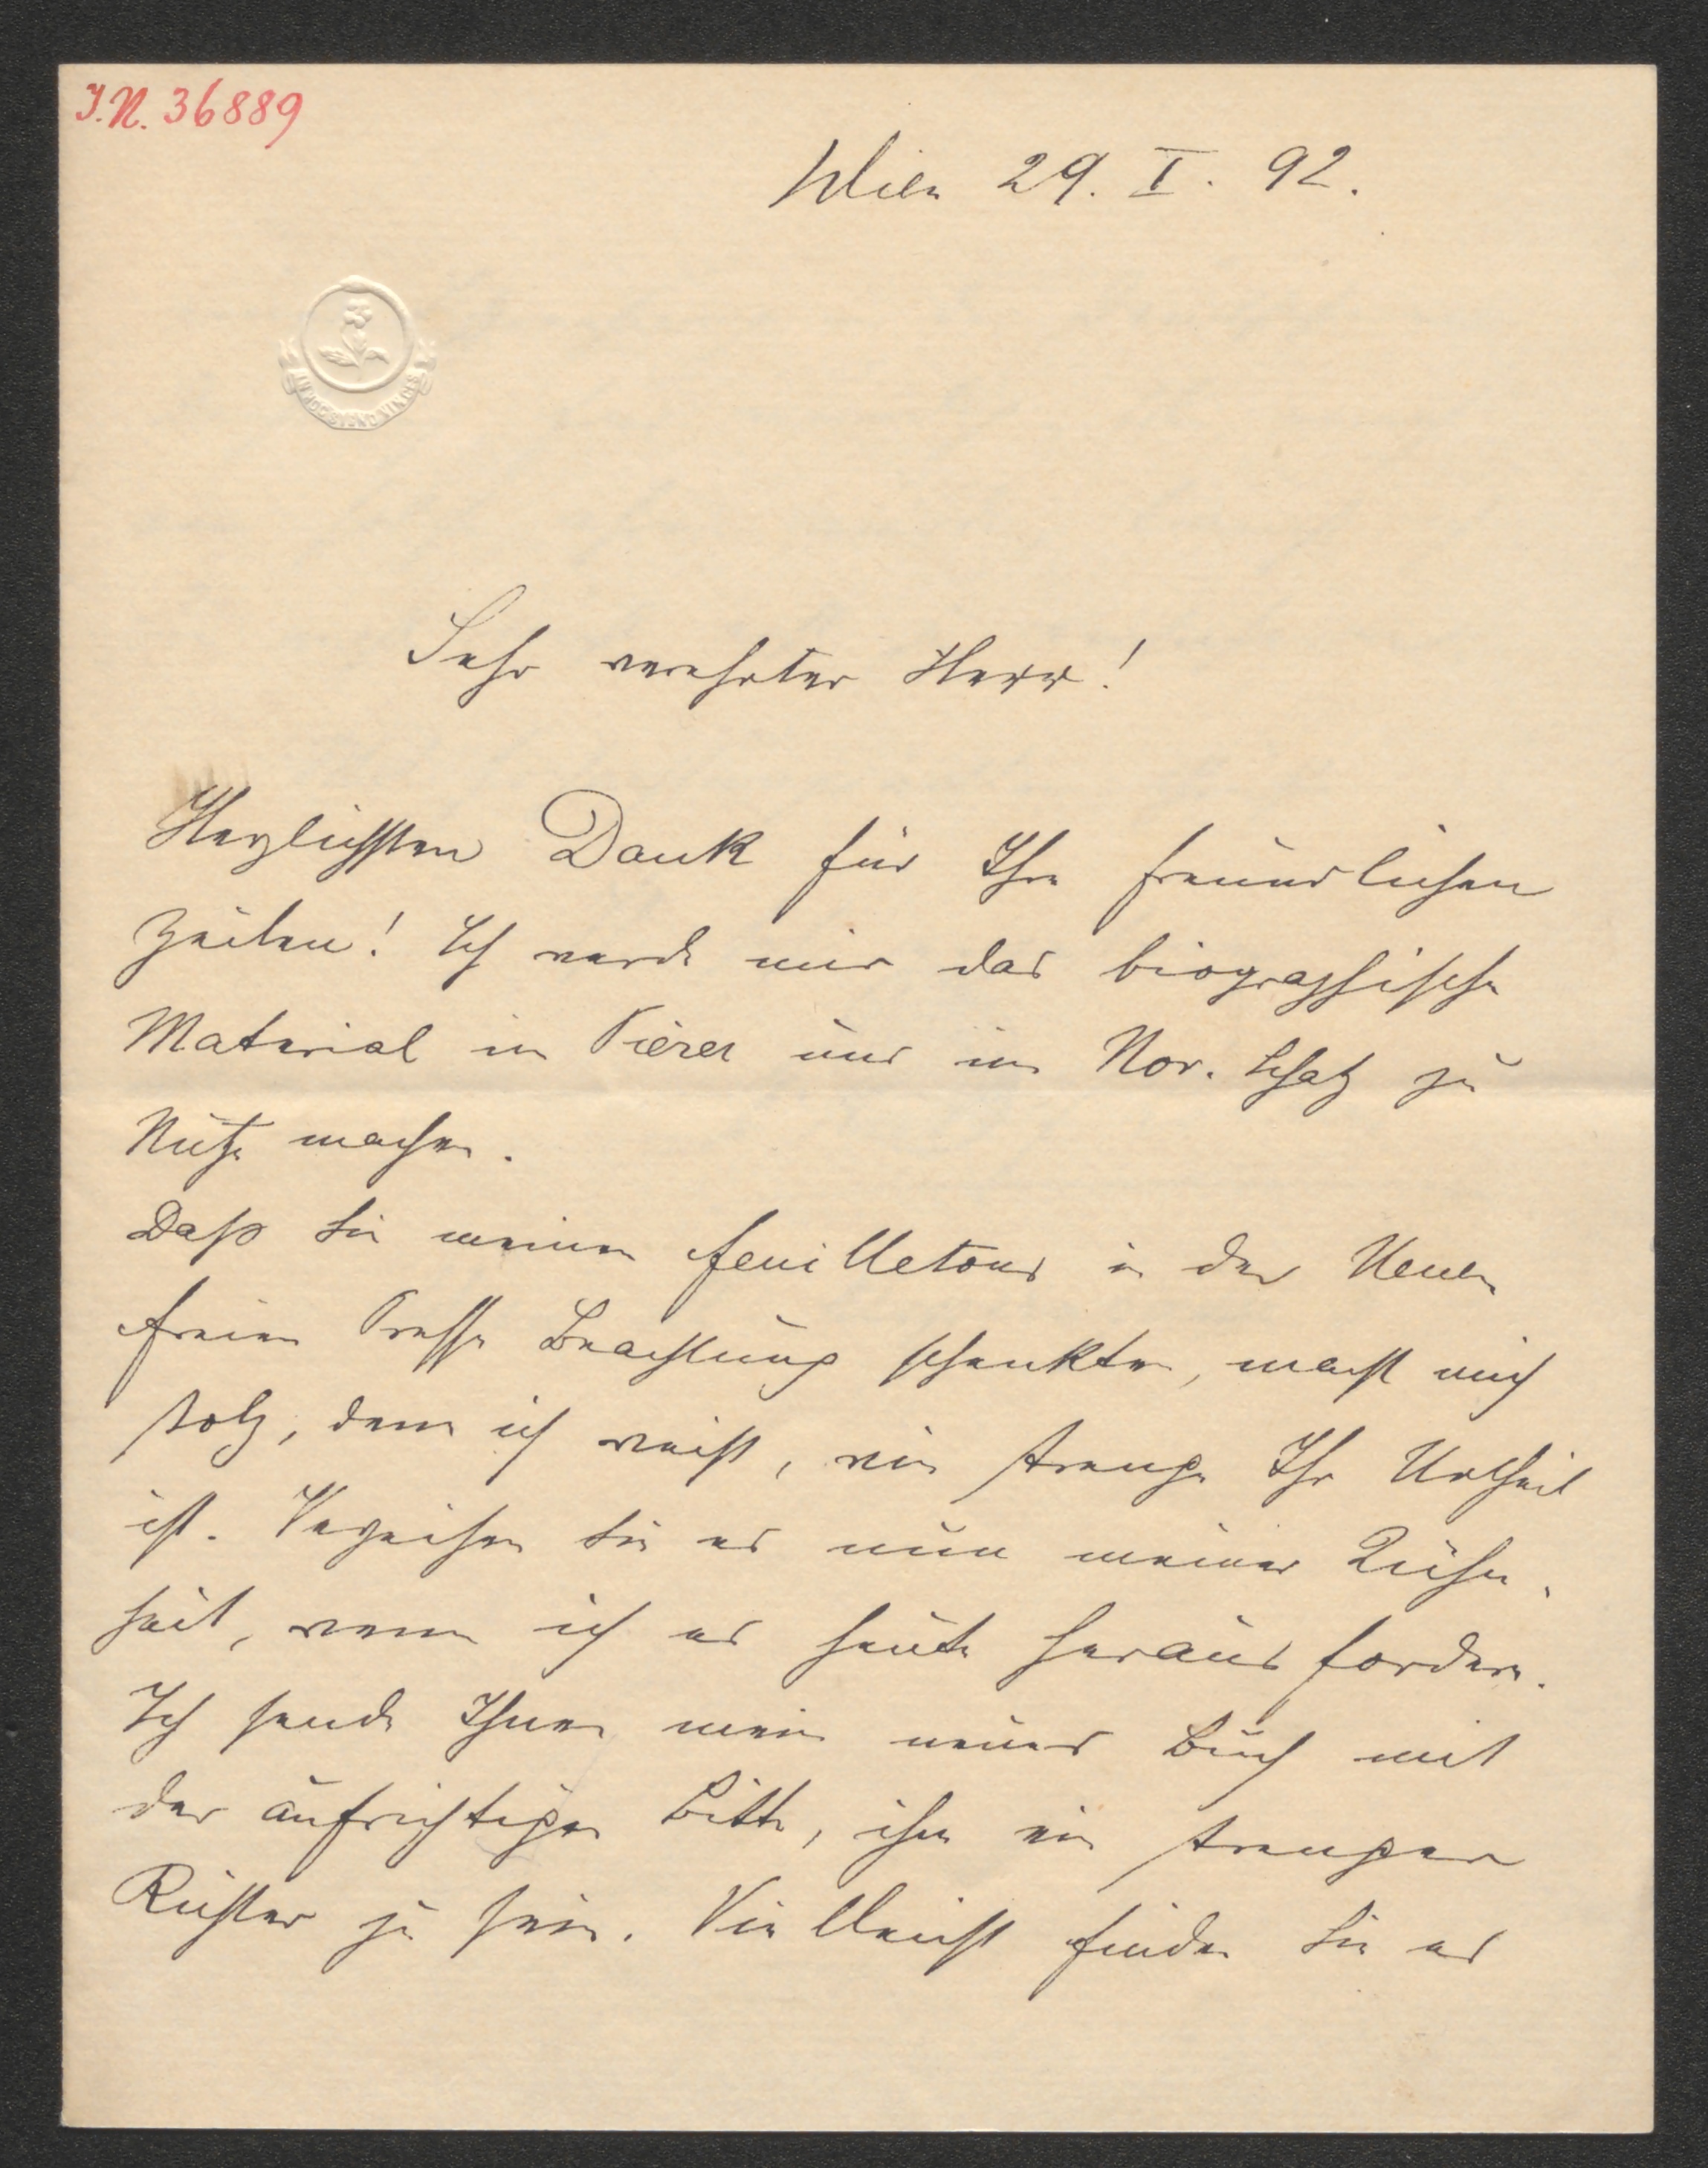 I.N. 36889
Wien 29. I. 92.
IN HOC SIGNO VINCES
Sehr verehrter Herr!
Herzlichsten Dank für Ihre freundlichen
Zeilen! Ich werde mir das biographische
Material in Pierer und im Nov. Schatz zu
Nutze machen.
Daß Sie meinen Feuilletons in der Neuen
freien Presse Beachtung schenkten, macht mich
stolz, denn ich weiß, wie strenge Ihr Urtheil
ist. Verzeihen Sie es nun meiner Kühn-
heit, wenn ich es heute heraus fordere.
Ich sende Ihnen mein neues Buch mit
der aufrichtigen Bitte, ihm ein strenger
Richter zu sein. Vielleicht finden Sie es